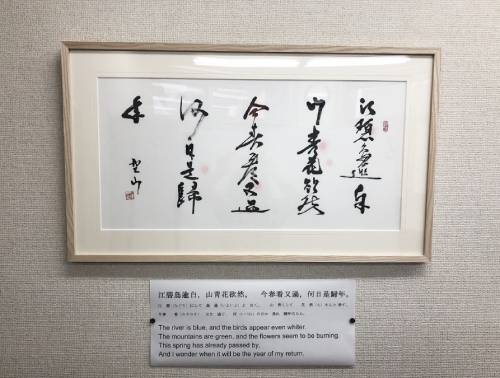 江碧鳥逾白
山青花欲然
今春看又過
何日是歸
年
江碧鳥逾白，山青花欲然，　今春看又過，何日是歸年。
The river is blue, and the birds appear even whiter.
The mountains are green, and the flowers seem to be burning.
This spring has already passed by,
And I wonder when it will be the year of my return.